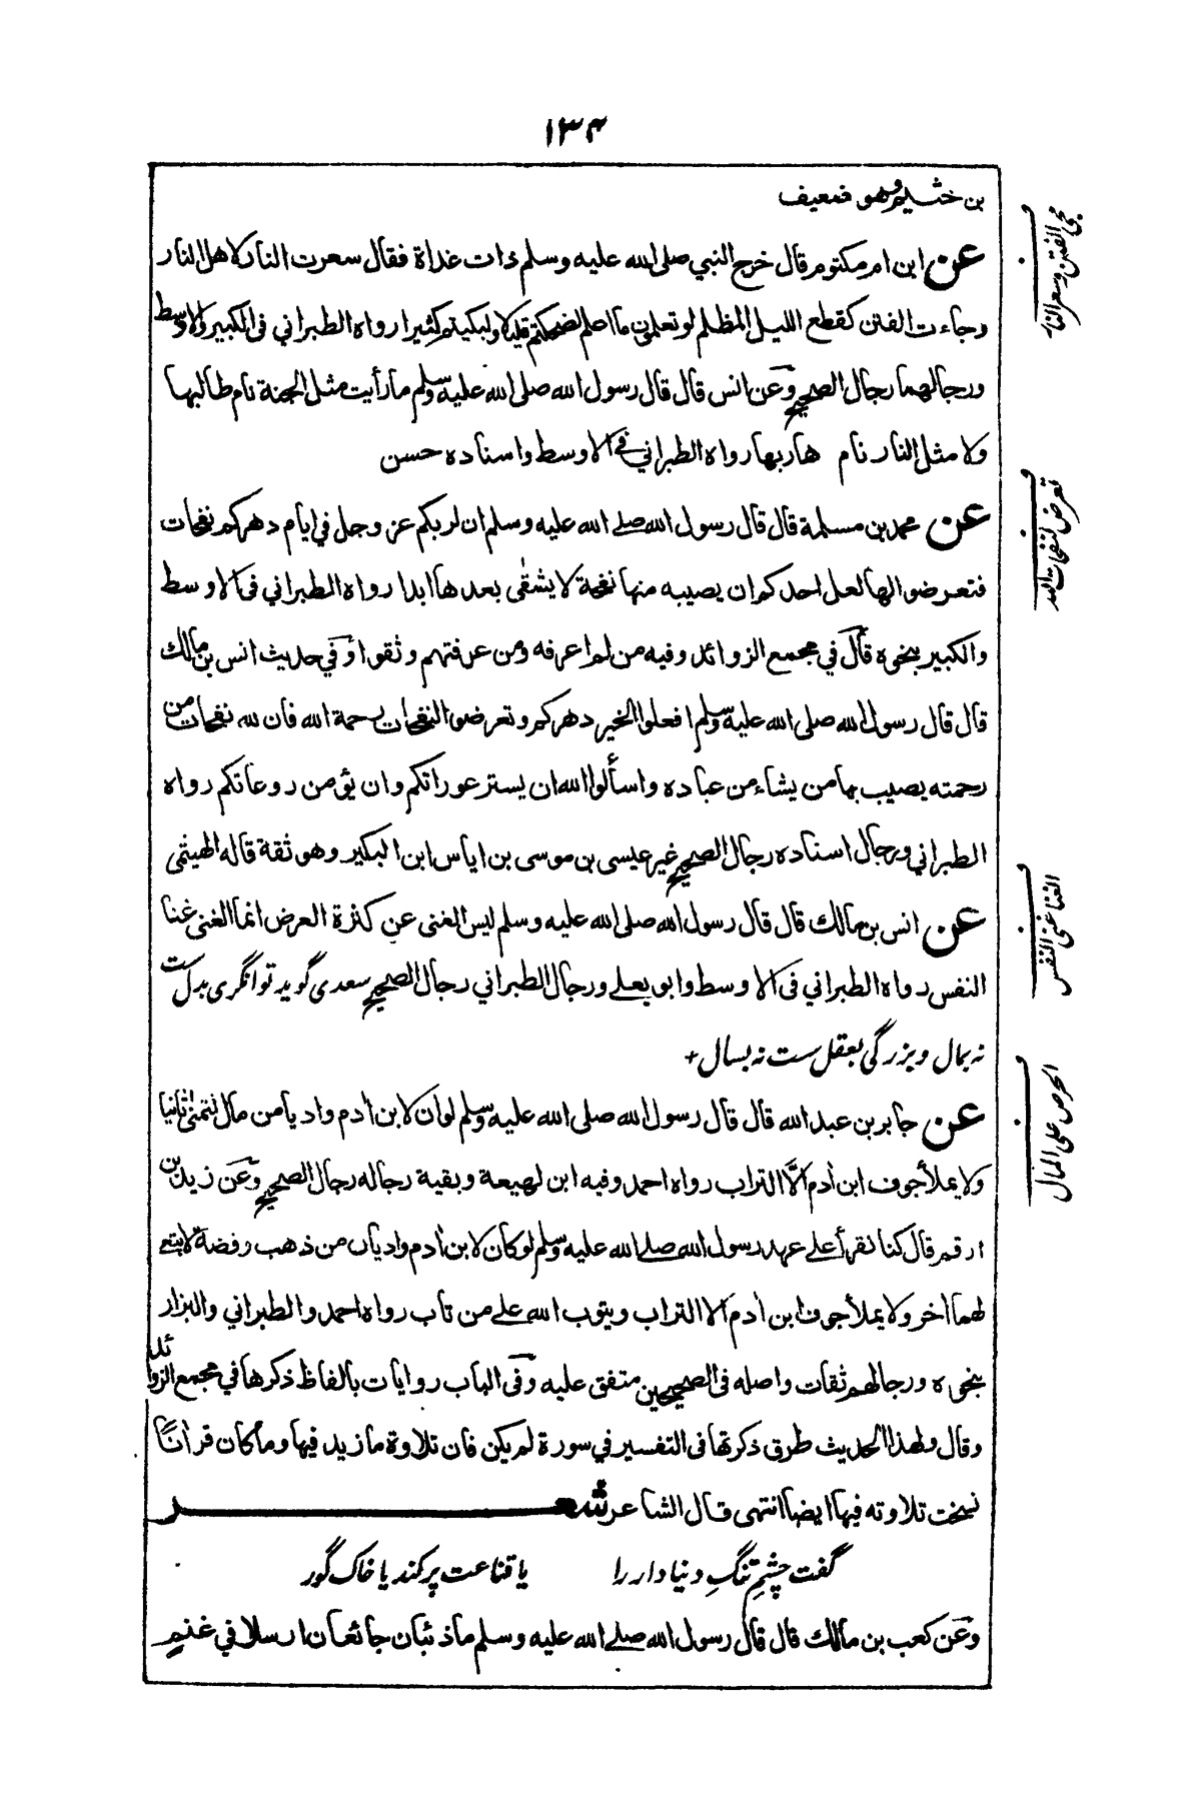 ١٣٤
بن خثيم وهو ضعيف
عن ابن ام مكتوم قال خرج النبي صلى الله عليه وسلم ذات غداة فقال سعرت النار لاهل النار
وجاءت الفتن كقطع الليل المظلم لو تعلمون ما اعلم لضحكتم قليلا ولبكيتم كثيرا رواه الطبراني في الكبير والاوسط
ورجالهما رجال الصحيح وعن انس قال قال رسول الله صلى الله عليه وسلم ما رأيت مثل الجنة نام طالبها
ولا مثل النار نام هاربها رواه الطبراني في الاوسط واسناده حسن
عن محمد بن مسلمة قال قال رسول الله صلے الله عليه وسلم ان لربكم عز وجل في ايام دهركم نفحات
فتعرضوا لها لعل احدكم ان يصيبه منها نفحة لا يشقى بعدها ابدا رواه الطبراني في الاوسط
والكبير بنحوه قال في مجمع الزوائد وفيه من لم اعرفه ومن عرفتهم وثقوا وفي حديث انس بن مالك
قال قال رسول الله صلى الله عليه وسلم افعلوا الخير دهركم وتعرضوا النفحات رحمة الله فان لله نفحات من
رحمته يصيب بها من يشاء من عباده واسألوا الله ان يستر عوراتكم وان يؤمن روعاتكم رواه
الطبراني ورجال اسناده رجال الصحيح غير عيسى بن موسى بن اياس ابن البكير وهو ثقة قاله الهيثمي
عن انس بن مالك قال قال رسول الله صلى الله عليه وسلم ليس الغنى عن كثرة العرض انما الغنى غنا
النفس رواه الطبراني في الاوسط وابو يعلے ورجال الطبراني رجال الصحيح سعدى گويد توانگرى بدل ست
نه بمال و بزرگى بعقل ست نه بسال +
عن جابر بن عبد الله قال قال رسول الله صلى الله عليه وسلم لو ان لابن اٰدم واديا من مال لتمنى ثانيا
ولا يملأ جوف ابن اٰدم الّا التراب رواه احمد وفيه ابن لهيعة وبقية رجاله رجال الصحيح وعن زيد بن
ارقم قال كنا نقرأ على عهد رسول الله صلے الله عليه وسلم لو كان لابن اٰدم واديان من ذهب وفضة لابتغے
لهما اٰخر ولا يملأ جوف ابن اٰدم الا التراب ويتوب الله على من تاب رواه احمد والطبراني والبزار
بنحوه ورجالهم ثقات واصله في الصحيحين متفق عليه وفي الباب روايات بالفاظ ذكرها في مجمع الزوائد
وقال ولهذا الحديث طرق ذكرتها في التفسير في سورة لم يكن فان تلاوة ما زيد فيها وما كان قراٰنًا
نسخت تلاوته فيها ايضا انتهى قال الشاعر شعر
گفت چشمِ تنگِ دنيا دار را يا قناعت پر كند يا خاک گور
وعن كعب بن مالك قال قال رسول الله صلے الله عليه وسلم ما ذئبان جائعان ارسلا في غنم
مجئ الفتن وسعر النار
تعرض لنفحات الله
الغنا غنى النفس
الحرص على المال